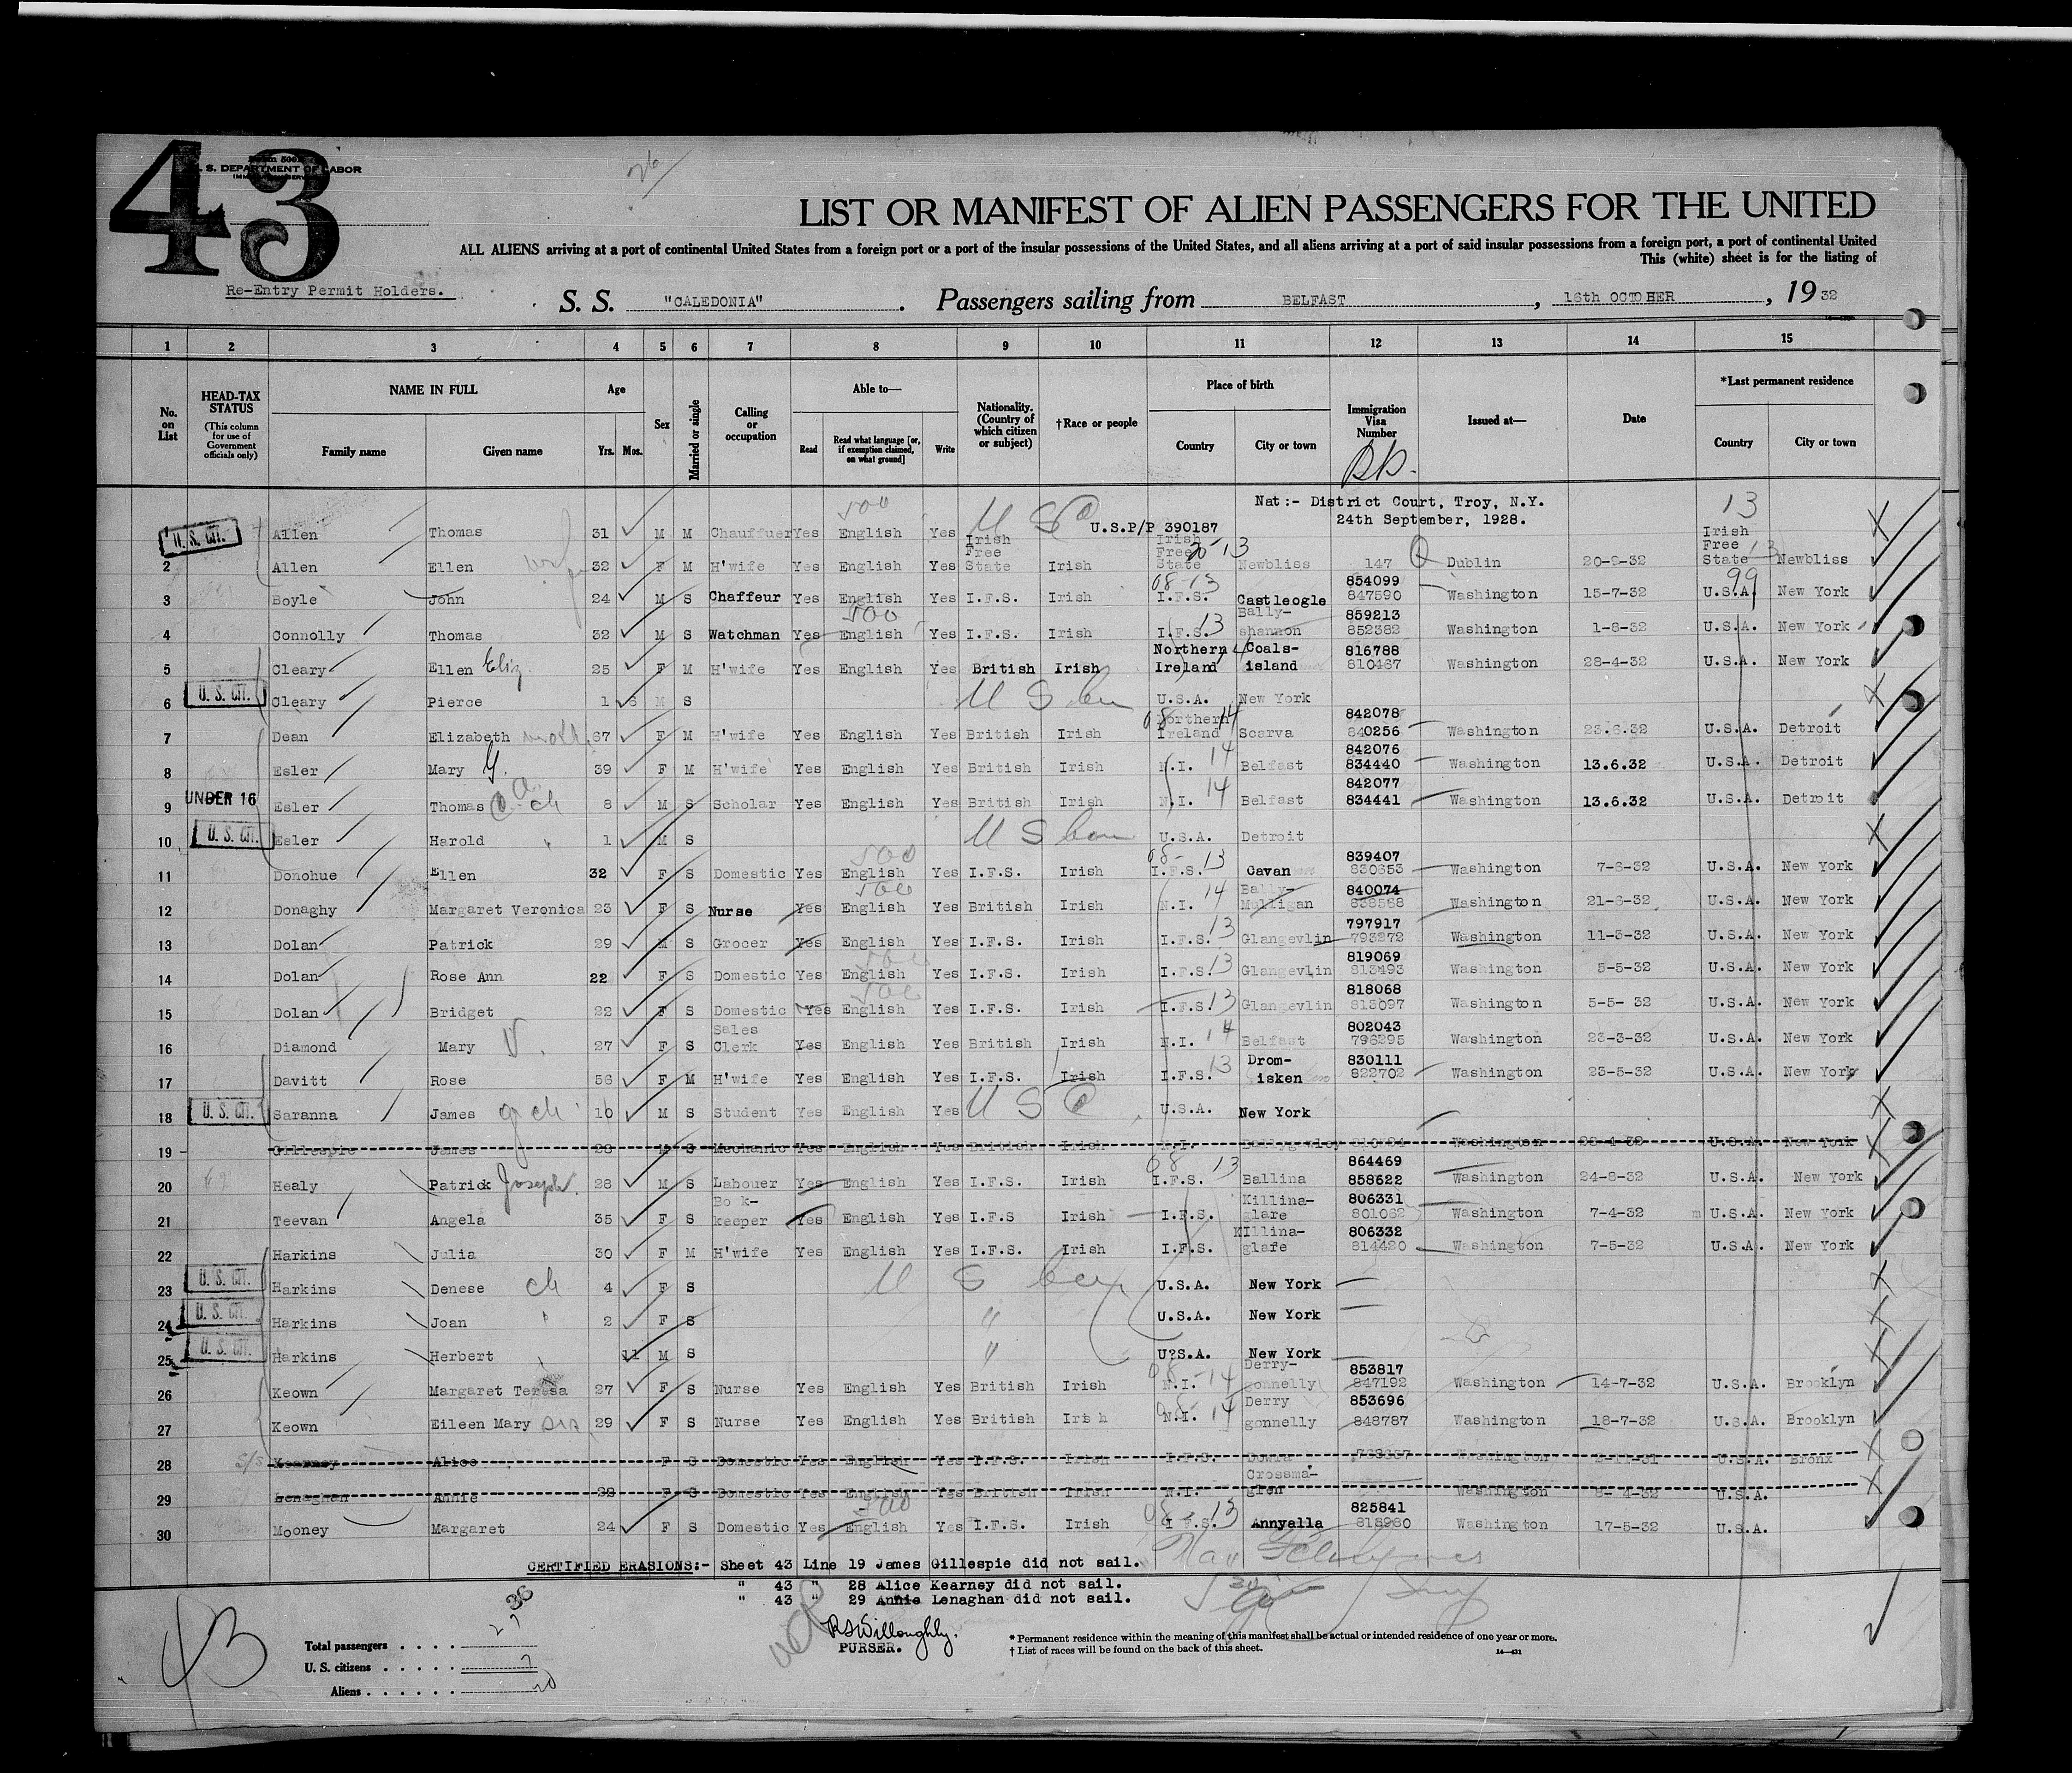 43
Form 500
U. S. DEPARTMENT OF LABOR
LIST OR MANIFEST OF ALIEN PASSENGERS FOR THE UNITED
ALL ALIENS arriving at a port of continental United States from a foreign port or a port of the insular possessions of the United States, and all aliens arriving at a port of said insular possessions from a foreign port, a port of continental United
This (white) sheet is for the listing of
Re-Entry Permit Holders.
S. S. "CALEDONIA". Passengers sailing from BELFAST, 16th OCTOBER, 1932
1 2 3 4 5 6 7 8 9 10 11 12 13 14 15
No. on List
HEAD-TAX STATUS (This column for use of Government officials only)
NAME IN FULL Family name Given name
Age Yrs. Mos.
Sex
Married or single
Calling or occupation
Able to— Read Read what language [or, if exemption claimed, on what ground] Write
Nationality. (Country of which citizen or subject)
†Race or people
Place of birth Country City or town
Immigration Visa Number
Issued at—
Date
*Last permanent residence Country City or town
Nat:- District Court, Troy, N.Y.
24th September, 1928.
1 U. S. CIT. Allen Thomas 31 M M Chauffuer Yes English 500 Yes U S C U.S.P/P 390187 13
2 Allen Ellen 32 F M H'wife Yes English Yes Irish Free State Irish Irish Free State Newbliss 147 Dublin 20-9-32 Irish Free State Newbliss
3 Boyle John 24 M S Chaffeur Yes English Yes I.F.S. Irish I.F.S. Castleogle 854099 847590 Washington 15-7-32 U.S.A. 99 New York
4 Connolly Thomas 32 M S Watchman Yes English 500 Yes I.F.S. Irish I.F.S. 13 Bally-shannon 859213 852382 Washington 1-8-32 U.S.A. New York
5 Cleary Ellen Eliz 25 F M H'wife Yes English Yes British Irish Northern Ireland Coals-island 816788 810467 Washington 28-4-32 U.S.A. New York
6 U. S. CIT. Cleary Pierce 1 6 M S U.S.A. New York
7 Dean Elizabeth 67 F M H'wife Yes English Yes British Irish Northern Ireland 14 Scarva 842078 840256 Washington 23.6.32 U.S.A. Detroit
8 Esler Mary 39 F M H'wife Yes English Yes British Irish N.I. 14 Belfast 842076 834440 Washington 13.6.32 U.S.A. Detroit
9 UNDER 16 Esler Thomas ch 8 M S Scholar Yes English Yes British Irish N.I. 14 Belfast 842077 834441 Washington 13.6.32 U.S.A. Detroit
10 U. S. CIT. Esler Harold " 1 M S U.S.A. Detroit
11 Donohue Ellen 32 F S Domestic Yes English 500 Yes I.F.S. Irish I.F.S. 13 Cavan 839407 830653 Washington 7-6-32 U.S.A. New York
12 Donaghy Margaret Veronica 23 F S Nurse Yes English 500 Yes British Irish N.I. 14 Bally-Mulligan 840074 838568 Washington 21-6-32 U.S.A. New York
13 Dolan Patrick 29 M S Grocer Yes English Yes I.F.S. Irish I.F.S. 13 Glangevlin 797917 793272 Washington 11-3-32 U.S.A. New York
14 Dolan Rose Ann 22 F S Domestic Yes English 500 Yes I.F.S. Irish I.F.S. 13 Glangevlin 819069 813493 Washington 5-5-32 U.S.A. New York
15 Dolan Bridget 22 F S Domestic Yes English 500 Yes I.F.S. Irish I.F.S. 13 Glangevlin 818068 813097 Washington 5-5- 32 U.S.A. New York
16 Diamond Mary V. 27 F S Sales Clerk Yes English Yes British Irish N.I. 14 Belfast 802043 796295 Washington 23-3-32 U.S.A. New York
17 Davitt Rose 56 F M H'wife Yes English Yes I.F.S. Irish I.F.S. 13 Drom-isken 830111 822702 Washington 23-5-32 U.S.A. New York
18 U. S. CIT. Saranna James g ch 10 M S Student Yes English Yes U S C U.S.A. New York
19 Gillespie James 28 M S Mechanic Yes English Yes British Irish N.I. Washington U.S.A. New York
20 Healy Patrick Joseph 28 M S Labouer Yes English Yes I.F.S. Irish I.F.S. 13 Ballina 864469 858622 Washington 24-8-32 U.S.A. New York
21 Teevan Angela 35 F S Bo k-keeper Yes English Yes I.F.S Irish I.F.S. Killina-glare 806331 801062 Washington 7-4-32 U.S.A. New York
22 Harkins Julia 30 F M H'wife Yes English Yes I.F.S. Irish I.F.S. KIllina-glare 806332 814420 Washington 7-5-32 U.S.A. New York
23 U. S. CIT. Harkins Denese ch 4 F S U.S.A. New York
24 U. S. CIT. Harkins Joan " 2 F S " U.S.A. New York
25 U. S. CIT. Harkins Herbert 11 M S " U?S.A. New York
26 Keown Margaret Teresa 27 F S Nurse Yes English Yes British Irish N.I. 14 Derry-gonnelly 853817 847192 Washington 14-7-32 U.S.A. Brooklyn
27 Keown Eileen Mary sis 29 F S Nurse Yes English Yes British Irish N.I. 14 Derry gonnelly 853696 848787 Washington 18-7-32 U.S.A. Brooklyn
28 Kearney Alice F S Domestic Yes English Yes I.F.S. Irish I.F.S. Dowra Washington U.S.A. Bronx
29 Lenaghan Annie 28 F S Domestic Yes English Yes British Irish N.I. Crossma-glen Washington 8- 4-32 U.S.A.
30 Mooney Margaret 24 F S Domestic Yes English Yes I.F.S. Irish I.F.S. 13 Annyalla 825841 818980 Washington 17-5-32 U.S.A.
CERTIFIED ERASIONS:- Sheet 43 Line 19 James Gillespie did not sail.
" 43 " 28 Alice Kearney did not sail.
" 43 " 29 Annie Lenaghan did not sail.
RSWilloughly.
PURSER.
43
Total passengers . . . . 27
U. S. citizens . . . . . 7
Aliens . . . . . . 20
* Permanent residence within the meaning of this manifest shall be actual or intended residence of one year or more.
† List of races will be found on the back of this sheet.